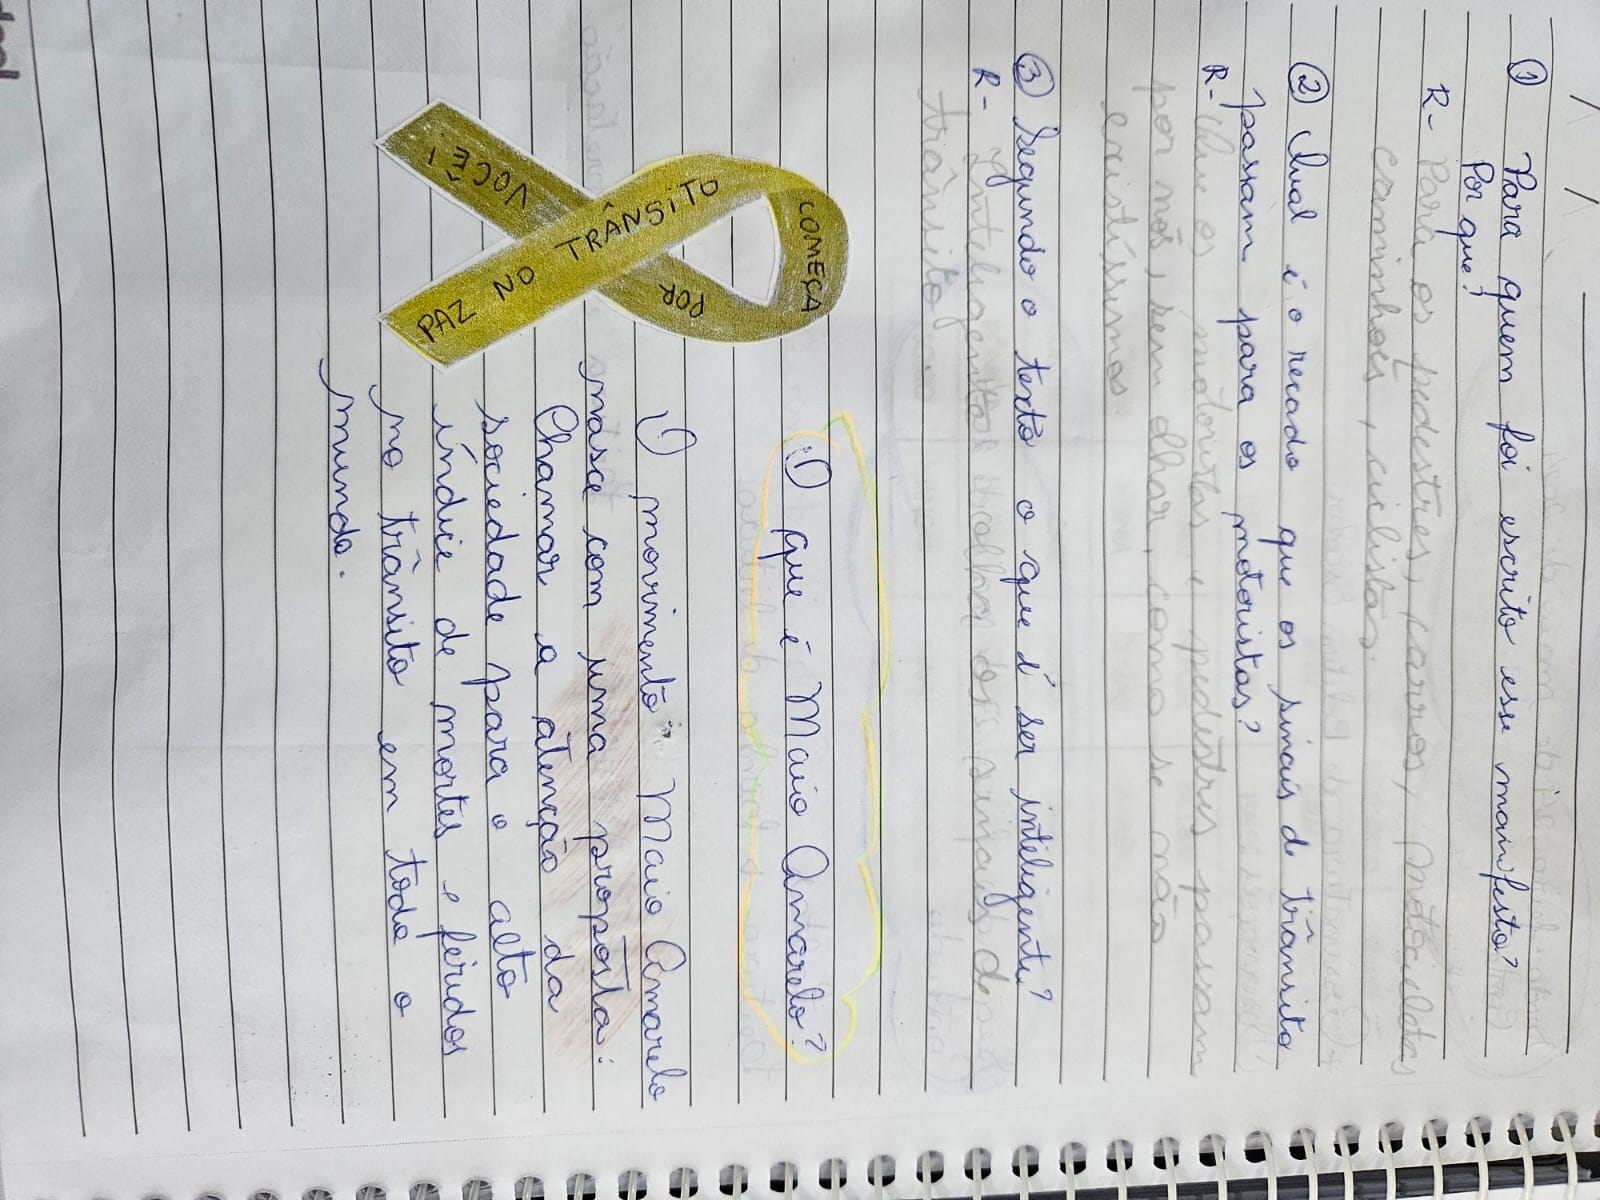 ① Para quem foi escrito esse manifesto?
Por que?
R- Para os pedestres, carros, motocicletas
caminhões, ciclistas.
② Qual é o recado que os sinais de trânsito
passam para os motoristas?
R- Que os motoristas e pedestres passam
por nós, sem olhar, como se não
existíssimos.
③ Segundo o texto o que é ser inteligente?
R- Inteligente é olhar os sinais de
trânsito.
O que é Maio Amarelo?
O movimento Maio Amarelo
nasce com uma proposta:
Chamar a atenção da
sociedade para o alto
índice de mortes e feridos
no trânsito em todo o
mundo.
PAZ NO TRÂNSITO
COMEÇA
POR
VOCÊ!